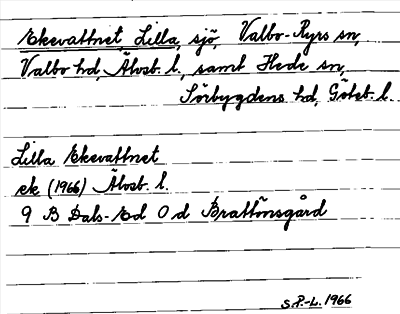 Ekevattnet, Lilla, sjö, Valbo-Ryrs sn,
Valbo hd, Älvsb. l., samt Hede sn,
Sörbygdens hd, Göteb. l.
Lilla Ekevattnet
ek (1966) Älvsb. l.
9 B Dals-Ed O d Brattönsgård
S.P.-L. 1966